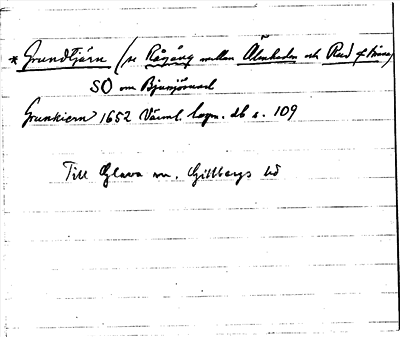 * Grundtjärn (se Rågång mellan Älmheden och Rud f. Finns)
SO om Bjurtjärnud
Grunkiern 1652 Värml. lagm. db s. 109
Till Glava sn, Gillbergs hd